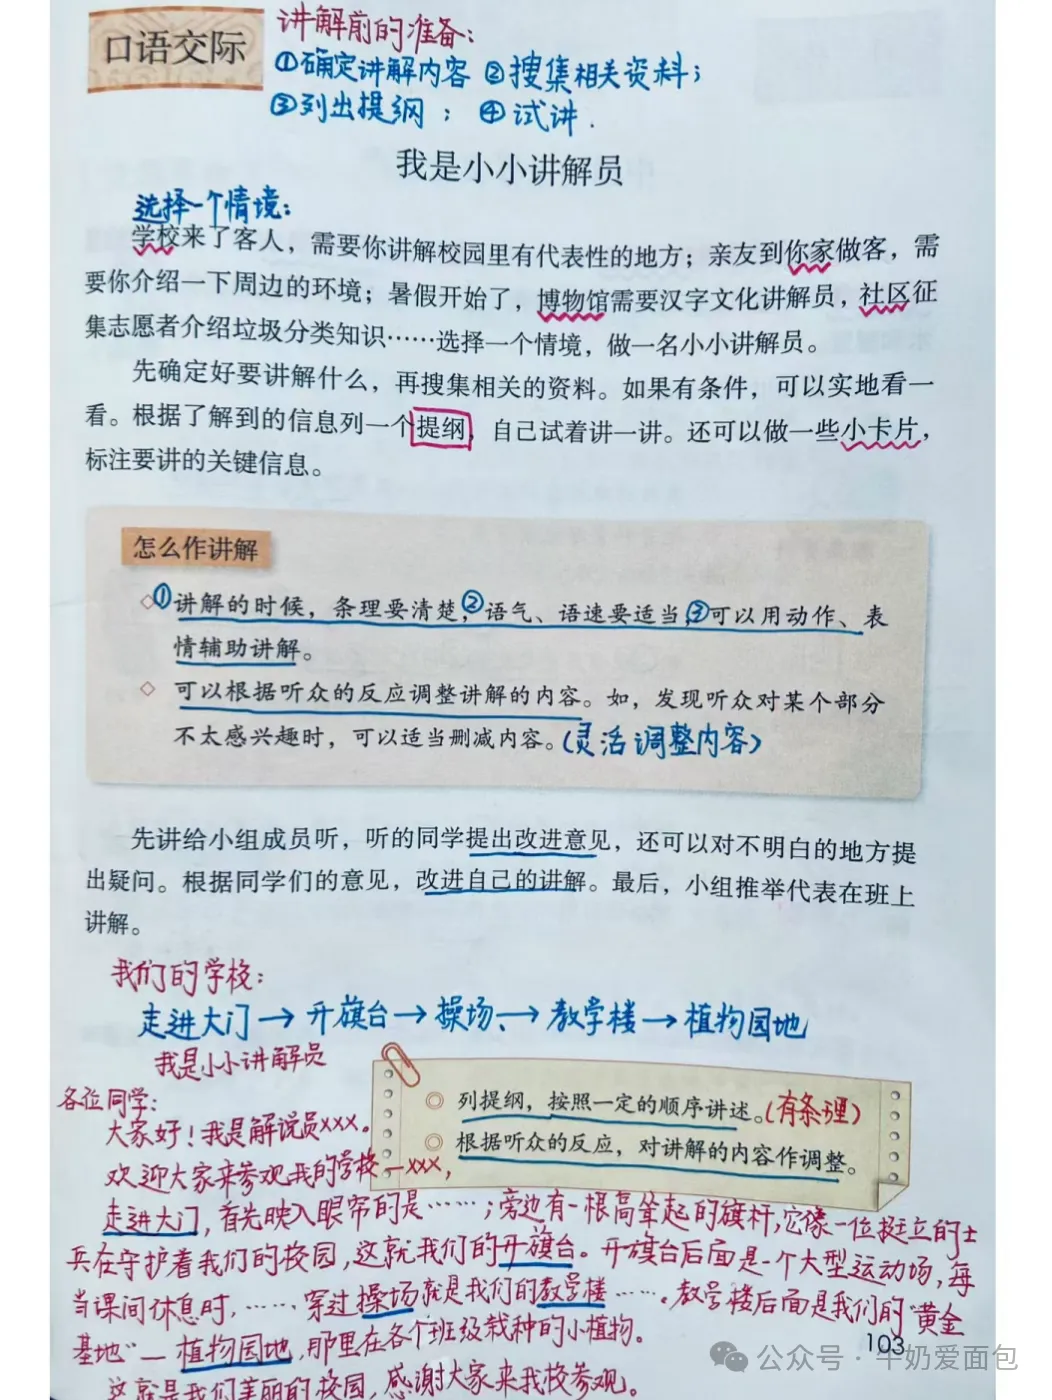 口语交际
讲解前的准备：
①确定讲解内容 ②搜集相关资料；
③列出提纲； ④试讲.
我是小小讲解员
选择一个情境：
学校来了客人，需要你讲解校园里有代表性的地方；亲友到你家做客，需
要你介绍一下周边的环境；暑假开始了，博物馆需要汉字文化讲解员，社区征
集志愿者介绍垃圾分类知识……选择一个情境，做一名小小讲解员。
先确定好要讲解什么，再搜集相关的资料。如果有条件，可以实地看一
看。根据了解到的信息列一个提纲，自己试着讲一讲。还可以做一些小卡片，
标注要讲的关键信息。
怎么作讲解
◇①讲解的时候，条理要清楚，②语气、语速要适当，③可以用动作、表
情辅助讲解。
◇ 可以根据听众的反应调整讲解的内容。如，发现听众对某个部分
不太感兴趣时，可以适当删减内容。（灵活调整内容）
先讲给小组成员听，听的同学提出改进意见，还可以对不明白的地方提
出疑问。根据同学们的意见，改进自己的讲解。最后，小组推举代表在班上
讲解。
我们的学校：
走进大门→开旗台→操场、→教学楼→植物园地
我是小小讲解员
◎ 列提纲，按照一定的顺序讲述。（有条理）
◎ 根据听众的反应，对讲解的内容作调整。
各位同学：
大家好！我是解说员xxx。
欢迎大家来参观我的学校—xxx，
走进大门，首先映入眼帘的是……；旁边有一根高耸起的旗杆，它像一位挺立的士
兵在守护着我们的校园，这就我们的开旗台。开旗台后面是一个大型运动场，每
当课间休息时，……．穿过操场就是我们的教学楼……。教学楼后面是我们的“黄金
基地”—植物园地，那里在各个班级栽种的小植物。
这就是我们美丽的校园，感谢大家来我校参观。
103
公众号·牛奶爱面包